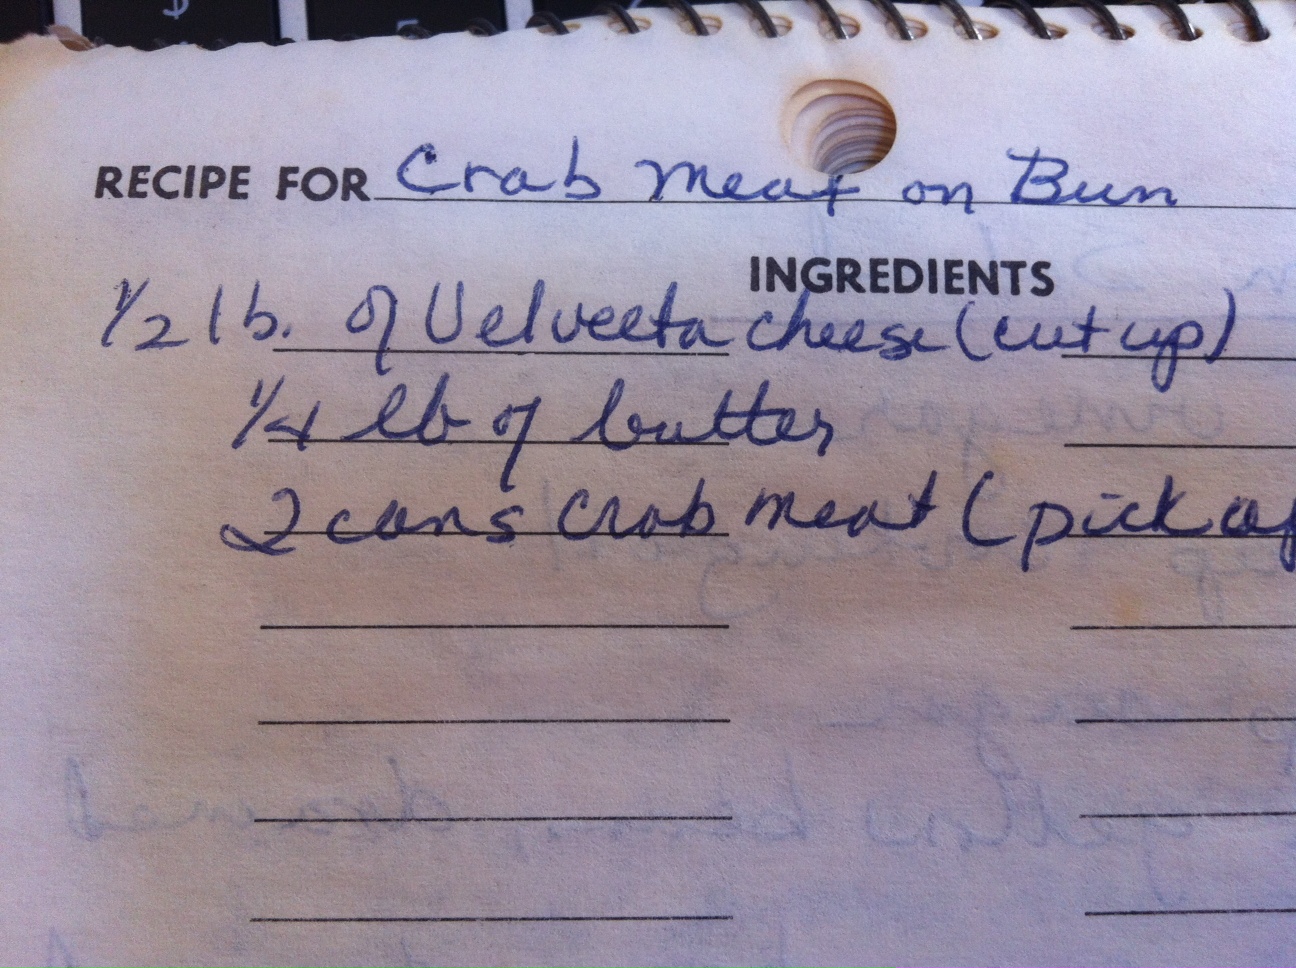 RECIPE FOR Crab Meat on Bun
INGREDIENTS
1/2 lb. of Velveeta cheese (cut up)
1/4 lb of butter
2 cans crab meat (pick